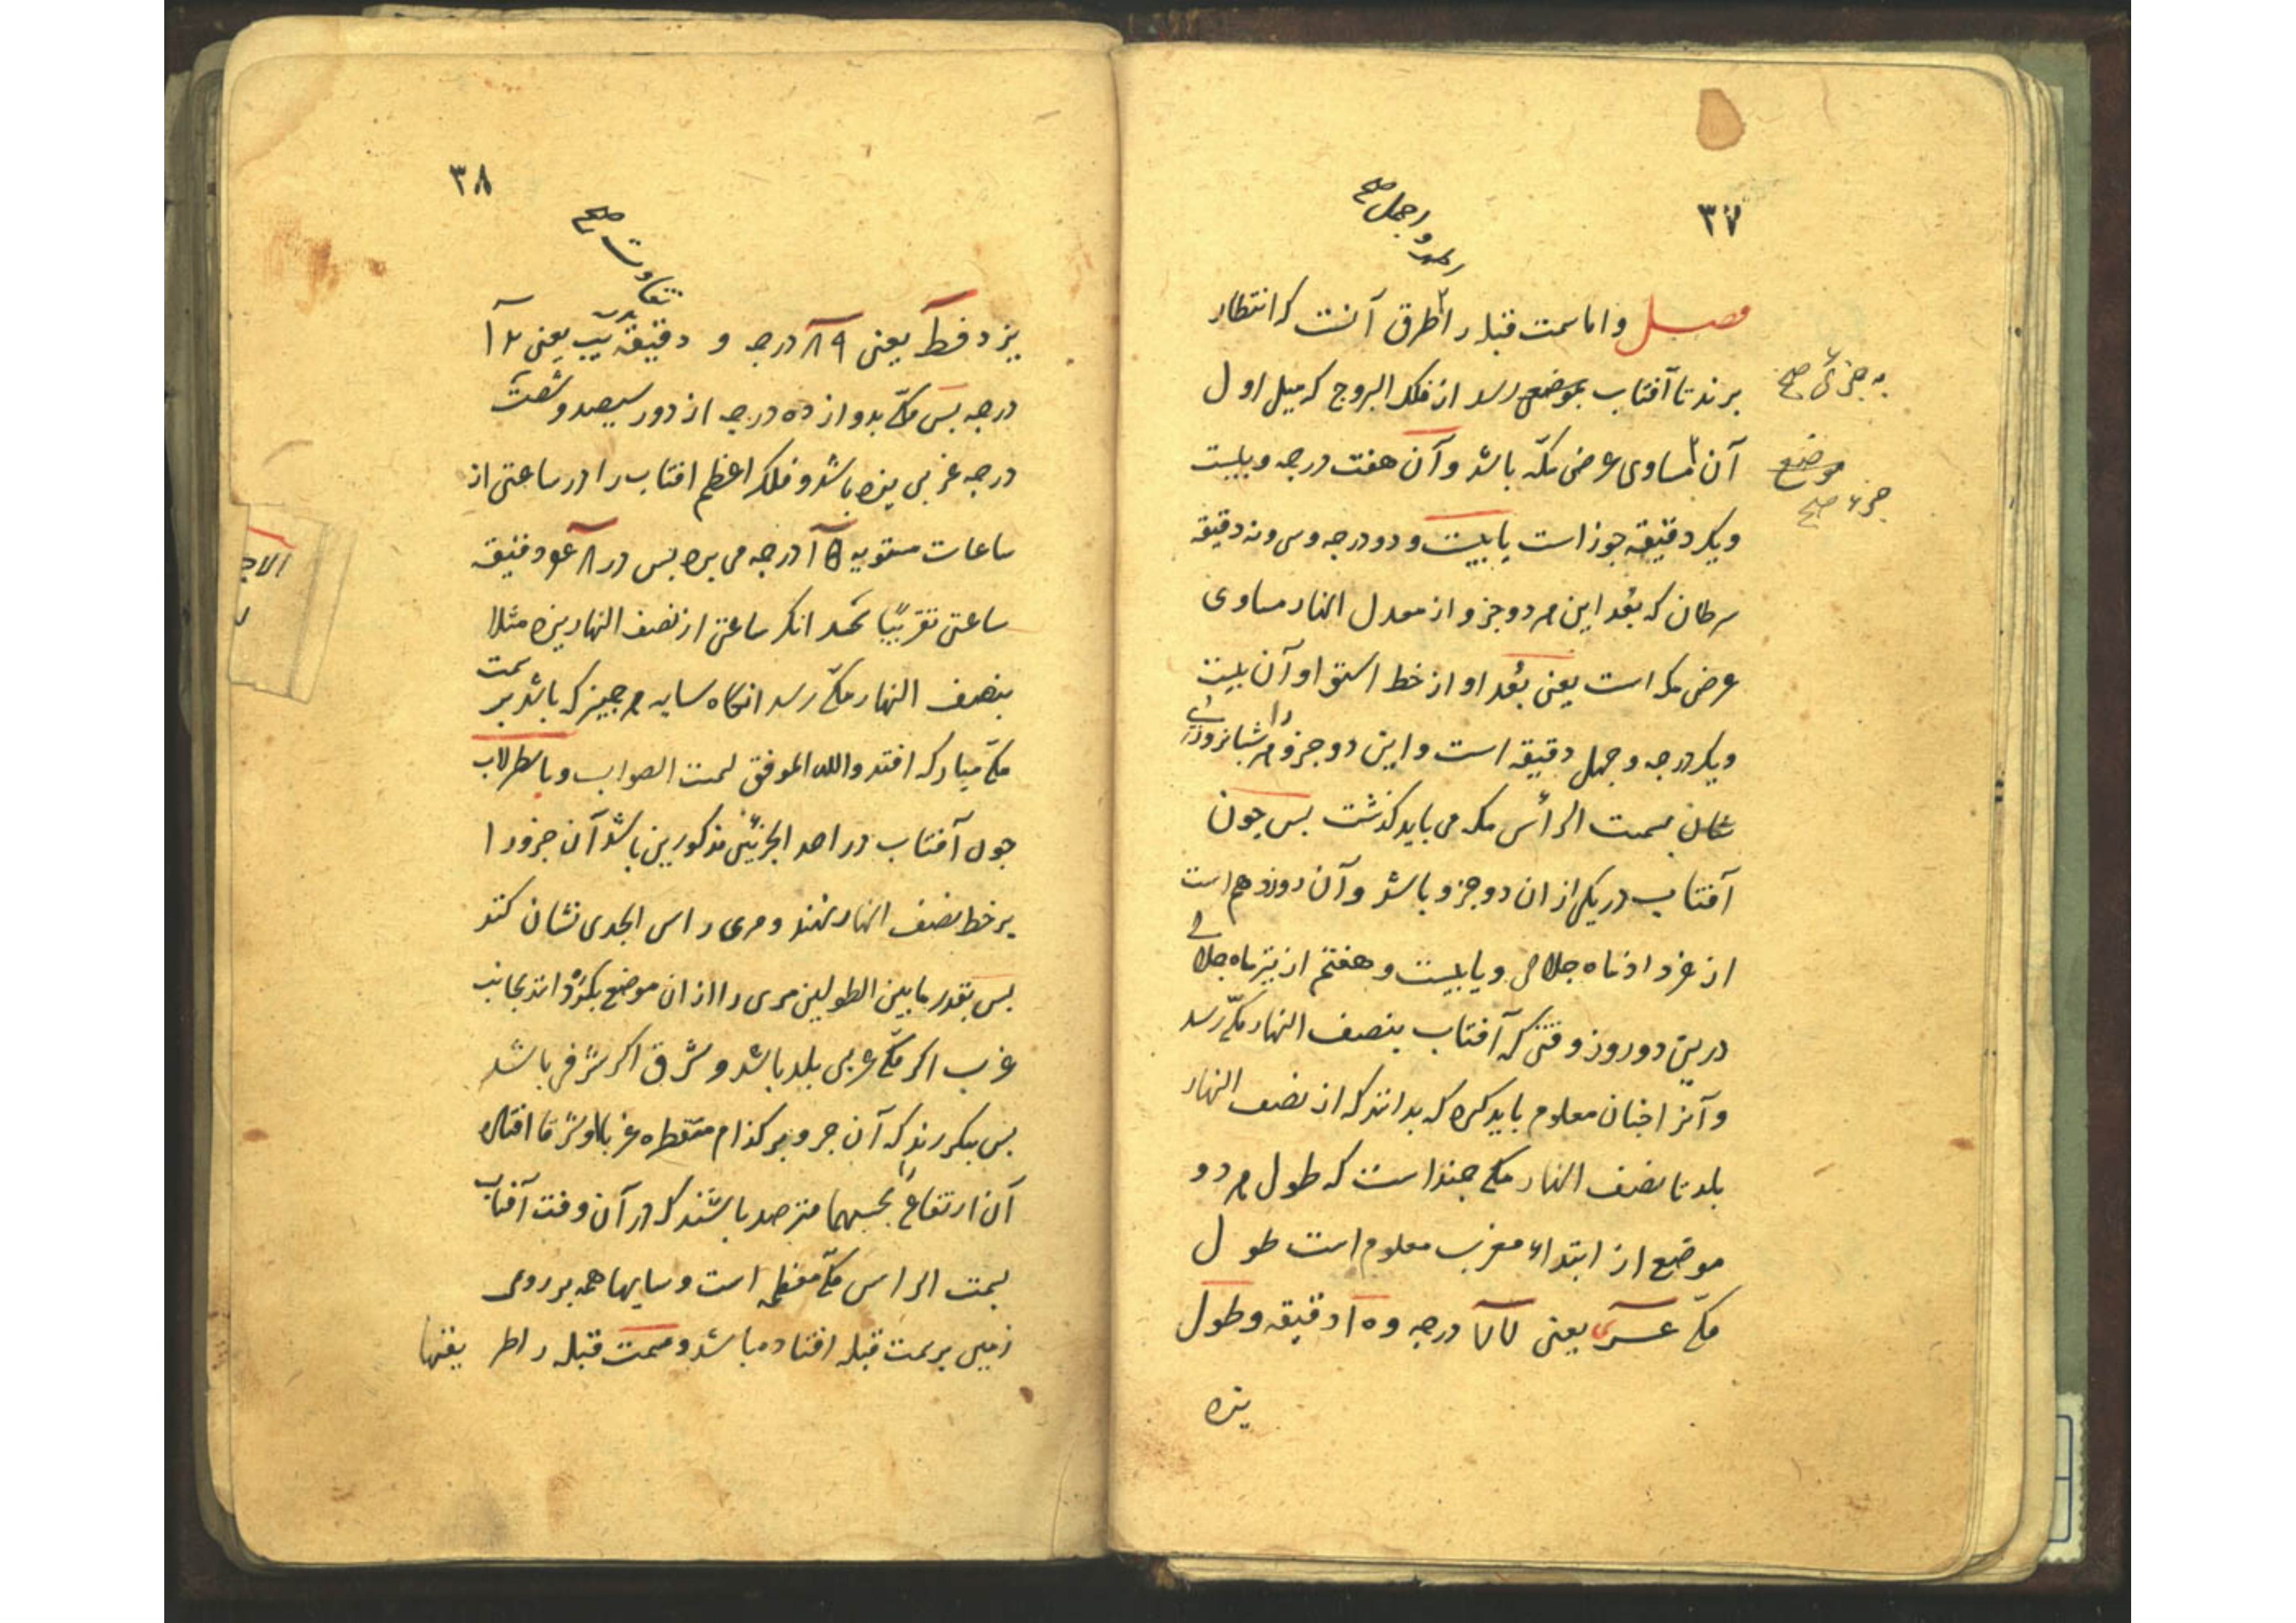 ۳۷
اسد و اجمل صح
فصل و اما سمت قبله را طرق آنست که انتظار
برند تا آفتاب بموضعی رسد از فلک البروج که میل اول
به جزئی صح
آن مساوی عرض مکّه باشد و آن هفت درجه و بیست
موضع
جزء صح
و یک دقیقه جوزاست یا بیست و دو درجه و سی و نه دقیقه
سرطان که بُعد این هر دو جزو از معدل النهار مساوی
عرض مکه است یعنی بُعد او از خط استوا و آن بیست
و یکدرجه و چهل دقیقه است و این دو جزو را هر شبانروزی
بسمت الرأس مکه می باید کذشت پس چون
آفتاب در یکی از ان دو جزو باشد و آن دوزدهم است
از خرداد ماه جلالی و یا بیست و هفتم از تیر ماه جلالی
درین دو روز وقتی که آفتاب بنصف النهار مکّه رسد
و آنرا چنان معلوم باید کرد که بدانند که از نصف النهار
بلد تا نصف النهار مکه چند است که طول هر دو
موضع از ابتداء مغرب معلوم است طول
مکّه عری یعنی ۷۷ درجه و ۱۰ دقیقه و طول
یزد
۳۸
تفاوت صح
یزد فط یعنی ۸۹ درجه و دقیقه یب یعنی ۱۲
درجه پس مکّه بدوازده درجه از دور سیصد و شصت
درجه غربی یزد باشد و فلک اعظم افتاب را در ساعتی از
ساعات مستویه ۱۵ درجه می برد پس در ۴۸ دقیقه
ساعتی تقریبًا بعد انکه ساعتی از نصف النهار یزد مثلا
بنصف النهار مکّه رسد انگاه سایه هر چیز که باشد بر سمت
مکّه مبارکه افتد والله الموفق لسمت الصواب و باسطرلاب
چون آفتاب در احد الجزئین مذکورین باشد آن جزو را
بر خط نصف النهار نهند و مری راس الجدی نشان کنند
پس بقدر ما بین الطولین مری را از ان موضع بگردانند بجانب
غرب اکر مکّه غربی بلد باشد و شرق اکر شرقی باشد
پس بنکرند که آن جزو بر کدام مقنطره غربا او شرقا افتاده
آن ارتفاع را بحسبها مترصد باشند که در آن وقت آفتاب
بسمت الراس مکّه معظمه است و سایها همه بر روی
زمین بر سمت قبله افتاده باشد و سمت قبله را طریقتها